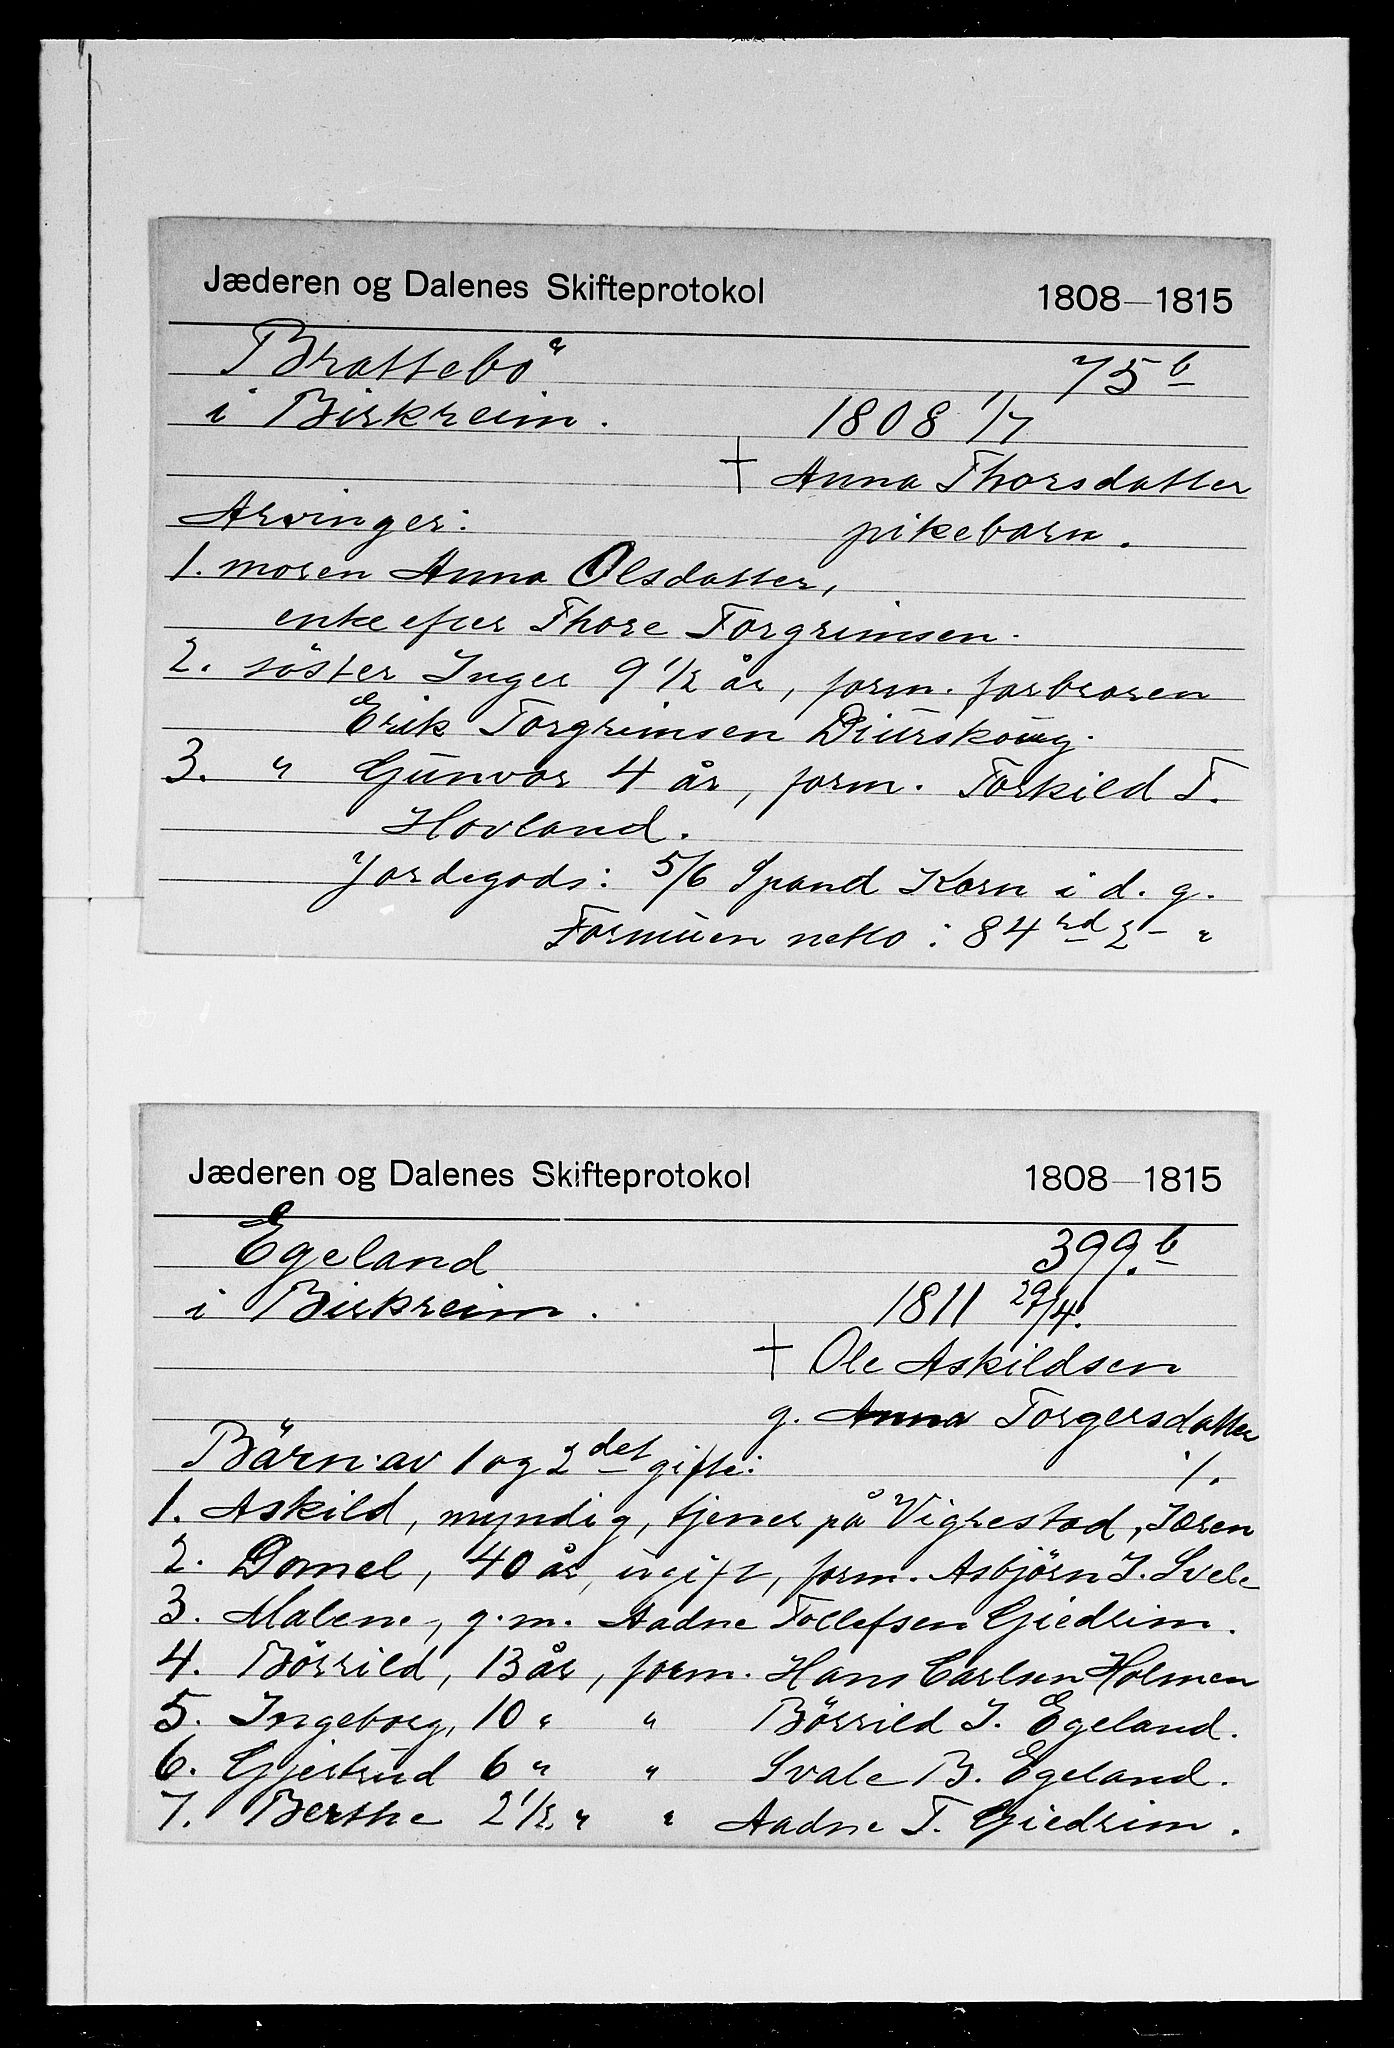 Jæderen og Dalenes Skifteprotokol 1808—1815
Brattebö 75 b
i Birkreim. 1808 1/7
† Anna Thorsdatter
Arvinger: pikebarn.
1. moren Anna Olsdatter,
enke efter Thore Torgrimsen.
2. söster Inger 9 1/2 år, form. farbroren
Erik Torgrimsen Diurskoug.
3. " Gunvor 4 år, form. Torkild T.
Hovland.
Jordegods: 5/6 Spand Korn i d. g.
Formuen netto: 84 rd 2 - "
Jæderen og Dalenes Skifteprotokol 1808—1815
Egeland 399. b
i Birkreim. 1811 29/4.
† Ole Askildsen
g. Anna Torgersdatter
Børn av 1 og 2 det gifte: ·/.
1. Askild, myndig, tjener på Vigrestad, Jæren
2. Domel, 40 år, ugift, form. Asbjörn J. Svele
3. Malene, g. m. Aadne Tollefsen Gjedrim.
4. Börrild, 13 år, form. Hans Carlsen Holmen
5. Ingeborg, 10 " " Börrild J. Egeland.
6. Gjertrud 6 " " Svale B. Egeland.
7. Berthe 2 1/2 " " Aadne T. Gjedrim.